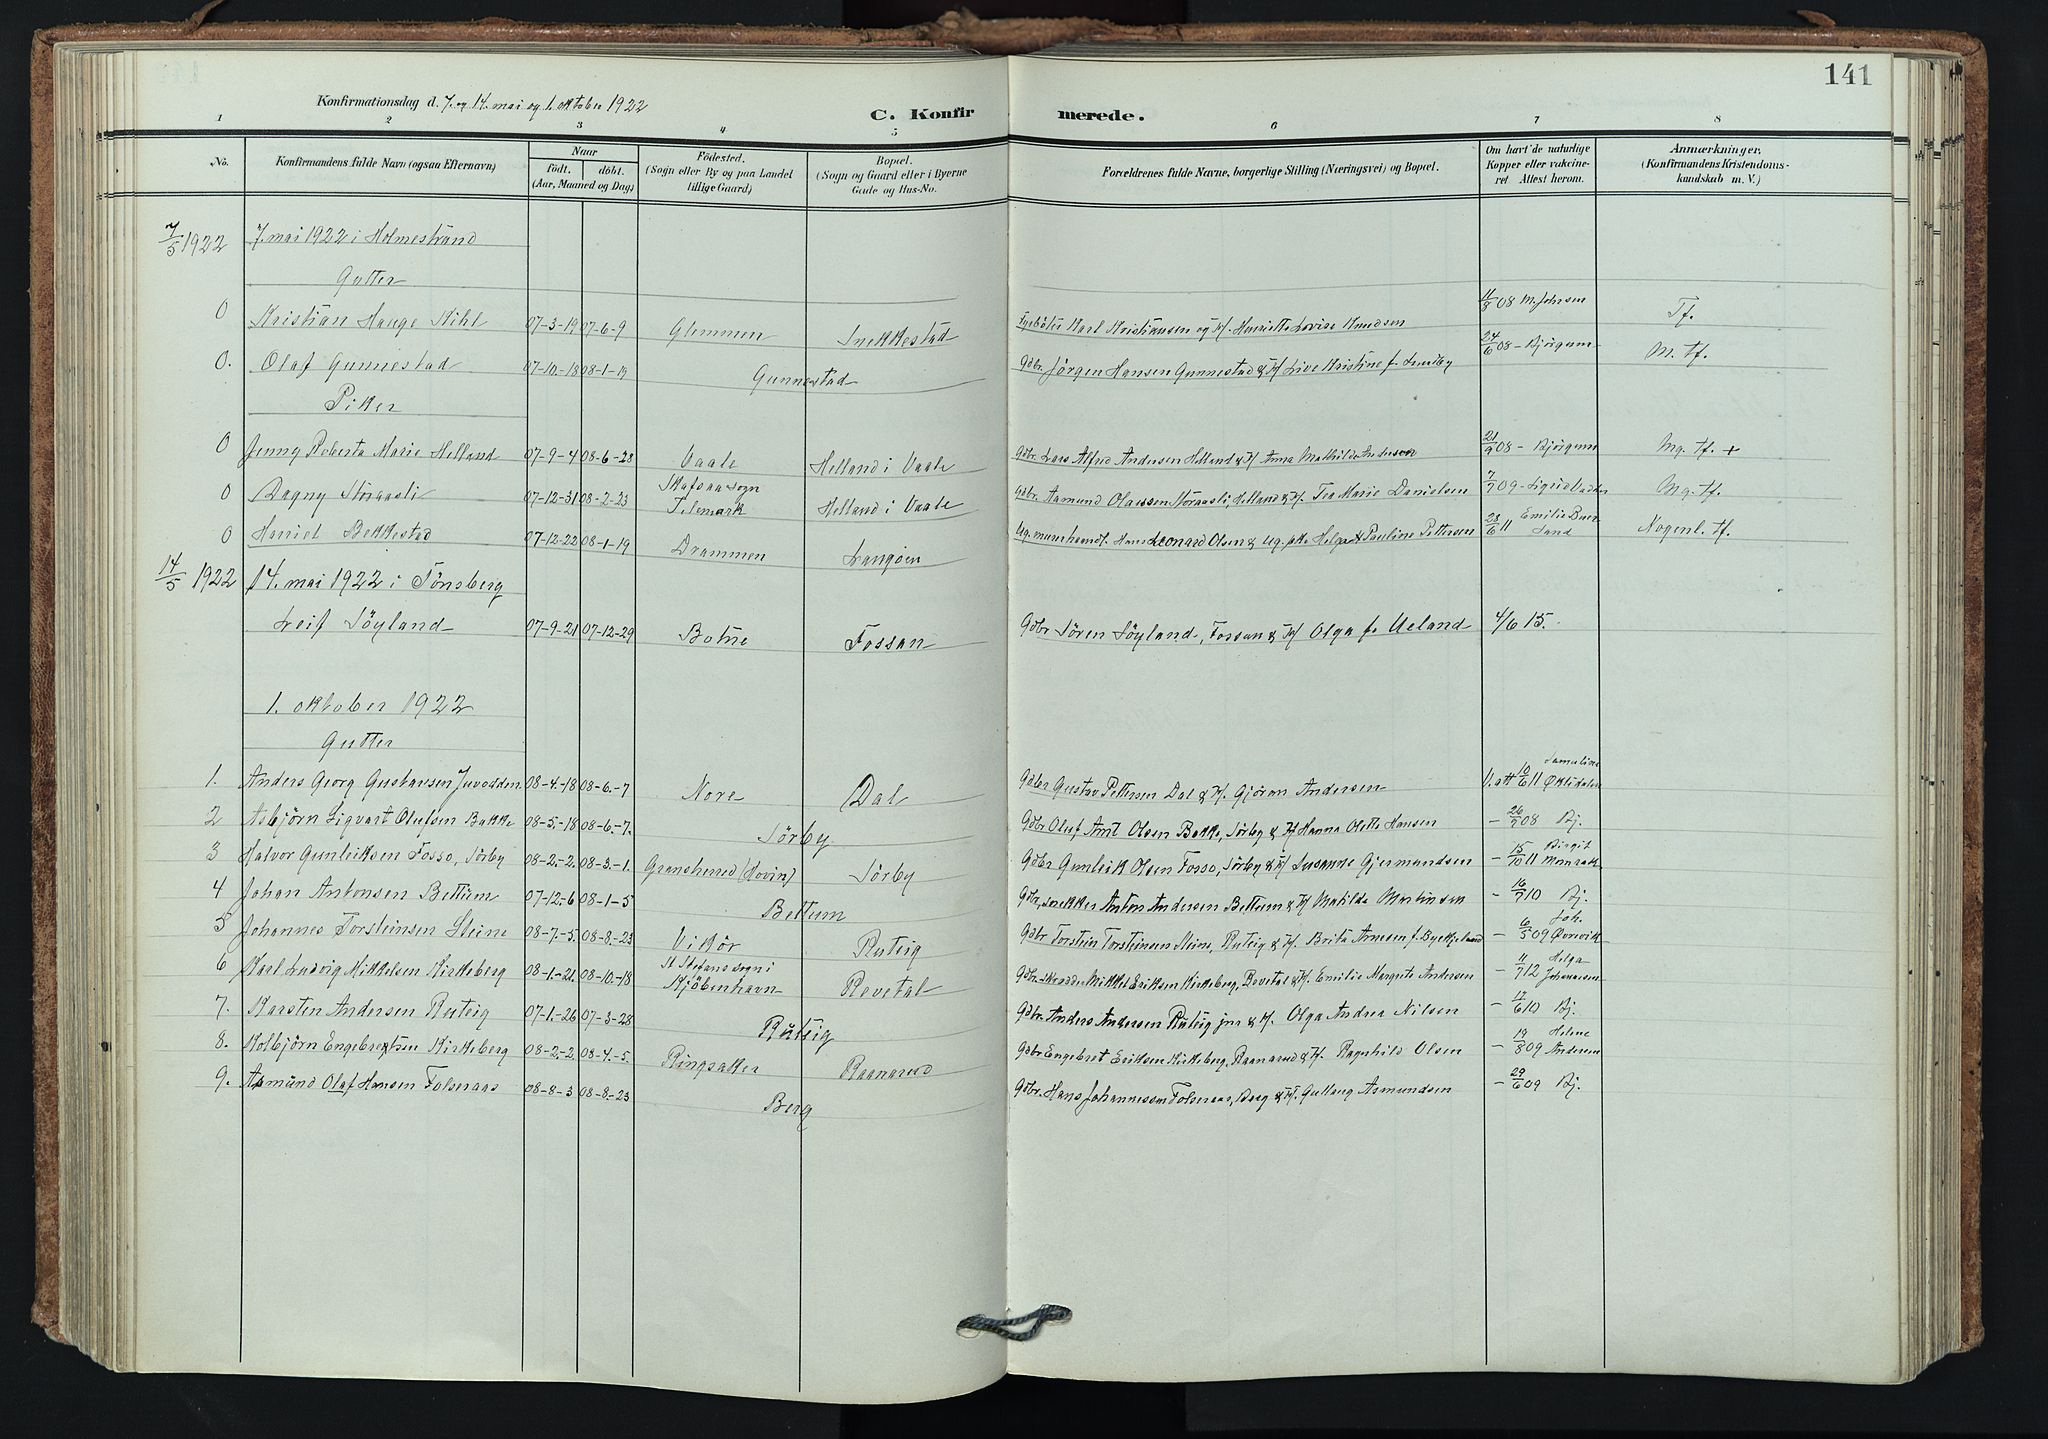 141
Konfirmationsdag d. 7. og 14. mai og 1. oktober 1922
C. Konfirmerede.
1 2 3 4 5 6 7 8
No.
Konfirmandens fulde Navn (ogsaa Efternavn)
Naar
født. døbt.
(Aar, Maaned og Dag)
Fødested.
(Sogn eller By og paa Landet
tillige Gaard)
Bopæl.
(Sogn og Gaard eller i Byerne
Gade og Hus-No.
Forældrenes fulde Navne, borgerlige Stilling (Næringsvei) og Bopæl.
Om havt de naturlige
Kopper eller vakcine-
ret Attest herom.
Anmærkninger.
(Konfirmandens Kristendoms-
kundskab m. V.)
7/5 1922 7. mai 1922 i Holmestrand
Gutter
0 Kristian Hauge Kihl 07-3-19 07-6-9 Glemmen Snekkestad Fyrbøter Karl Kristiansen og H. Henriette Lovise Knudsen 11/8 08 M. Johnsen Tf.
0. Olaf Gunnestad 07-10-18 08-1-19 Gunnestad Gdbr. Jörgen Hansen Gunnestad & H/ Live Kristine f. Lundby 24/6 08 - Bjørgum M. tf.
Piker
0 Jenny Roberta Marie Helland 07-9-4 08-6-28 Vaale Helland i Vaale Gdbr. Lars Alfred Andersen Helland & H/ Anna Mathilde Andersen 21/9 08 - Bjørgum Mg. tf. +
0 Dagny Storaasli 07-12-31 08-2-23 Skafsaa sogn Telemark Helland i Vaale Gdbr. Aamund Olavssen Storaasli, Helland & H. Tea Marie Danielsen 7/7 09 - Mg. tf.
0 Harriet Bekkestad 07-12-22 08-1-19 Drammen Langöen Ug. murerhaandt. Hans Leonard Olsen & ug. pike Helga Pauline Pettersen 28/6 11 Emilie Buer Sand Nogenl. tf.
14/5 1922 14. mai 1922 i Tönsberg
Leif Söyland 07-9-21 07-12-29 Botne Fossan Gdbr Sören Söyland, Fossan & H/ Olga f. Ueland 4/6 15.
1. oktober 1922
Gutter
1. Anders Georg Gustavsen Juvodden 08-4-18 08-6-7 Nore Dal Gdbr Gustav Pettersen Dal & H. Gjöran Andersen V. att 10/6 11
2 Asbjörn Sigvart Olufsen Bakke 08-5-18 08-6-7. Sörby Gdbr Oluf Amt Olsen Bakke, Sörby & H/ Hanna Olette Hansen - 26/7 08 Bj.
3 Halvor Gunleiksen Fosso, Sörby 08-2-2. 08-3-1. Gransherred (Hovin) Sörby Gdbr Gunleik Olsen Fosso, Sörby & H/ Susanne Gjermundsen - 15/10 11 Birgit
4 Johan Antonsen Bettum 07-12-6 08-1-5 Bettum Gdbr, snekker Anton Andersen Bettum & H/ Matilde Martinsen - 16/7 10 Bj.
5 Johannes Torsteinsen Steine 08-7-5. 08-8-23 Vikör Ruteig Gdbr Torstein Torsteinsen Steine, Ruteig & H. Brita Arnesen f. - 6/5 09 Joh. Övrevik
6 Karl Ludvig Mikkelsen Kirkeberg 08-1-21. 08-10-18 St Stefans sogn i Kjöbenhavn Revetal Gdbr. skrædder Mikkel Eriksen Kirkeberg, Revetal & H. Emilie Margrete Andersen - 11/7 12 Helga Johannesen
7. Karsten Andersen Ruteig 07-1-26 07-3-28 Ruteig Gdbr. Anders Andersen Ruteig jnr & H. Olga Andrea Nilsen - 17/6 10 Bj.
8. Kolbjörn Engebretsen Kirkeberg 08-2-2. 08-4-5. Ringsaker Raanarud Gdbr Engebret Eriksen Kirkeberg, Raanarud & H. Ragnhild Olsen - 19/8 09 Helene Andersen
9. Asmund Olaf Hansen Folseraas 08-8-3 08-8-23 Berg Gdbr. Hans Johannessen Folseraas, Berg & H. Gullaug Asmundsen - 29/6 09 Bj.